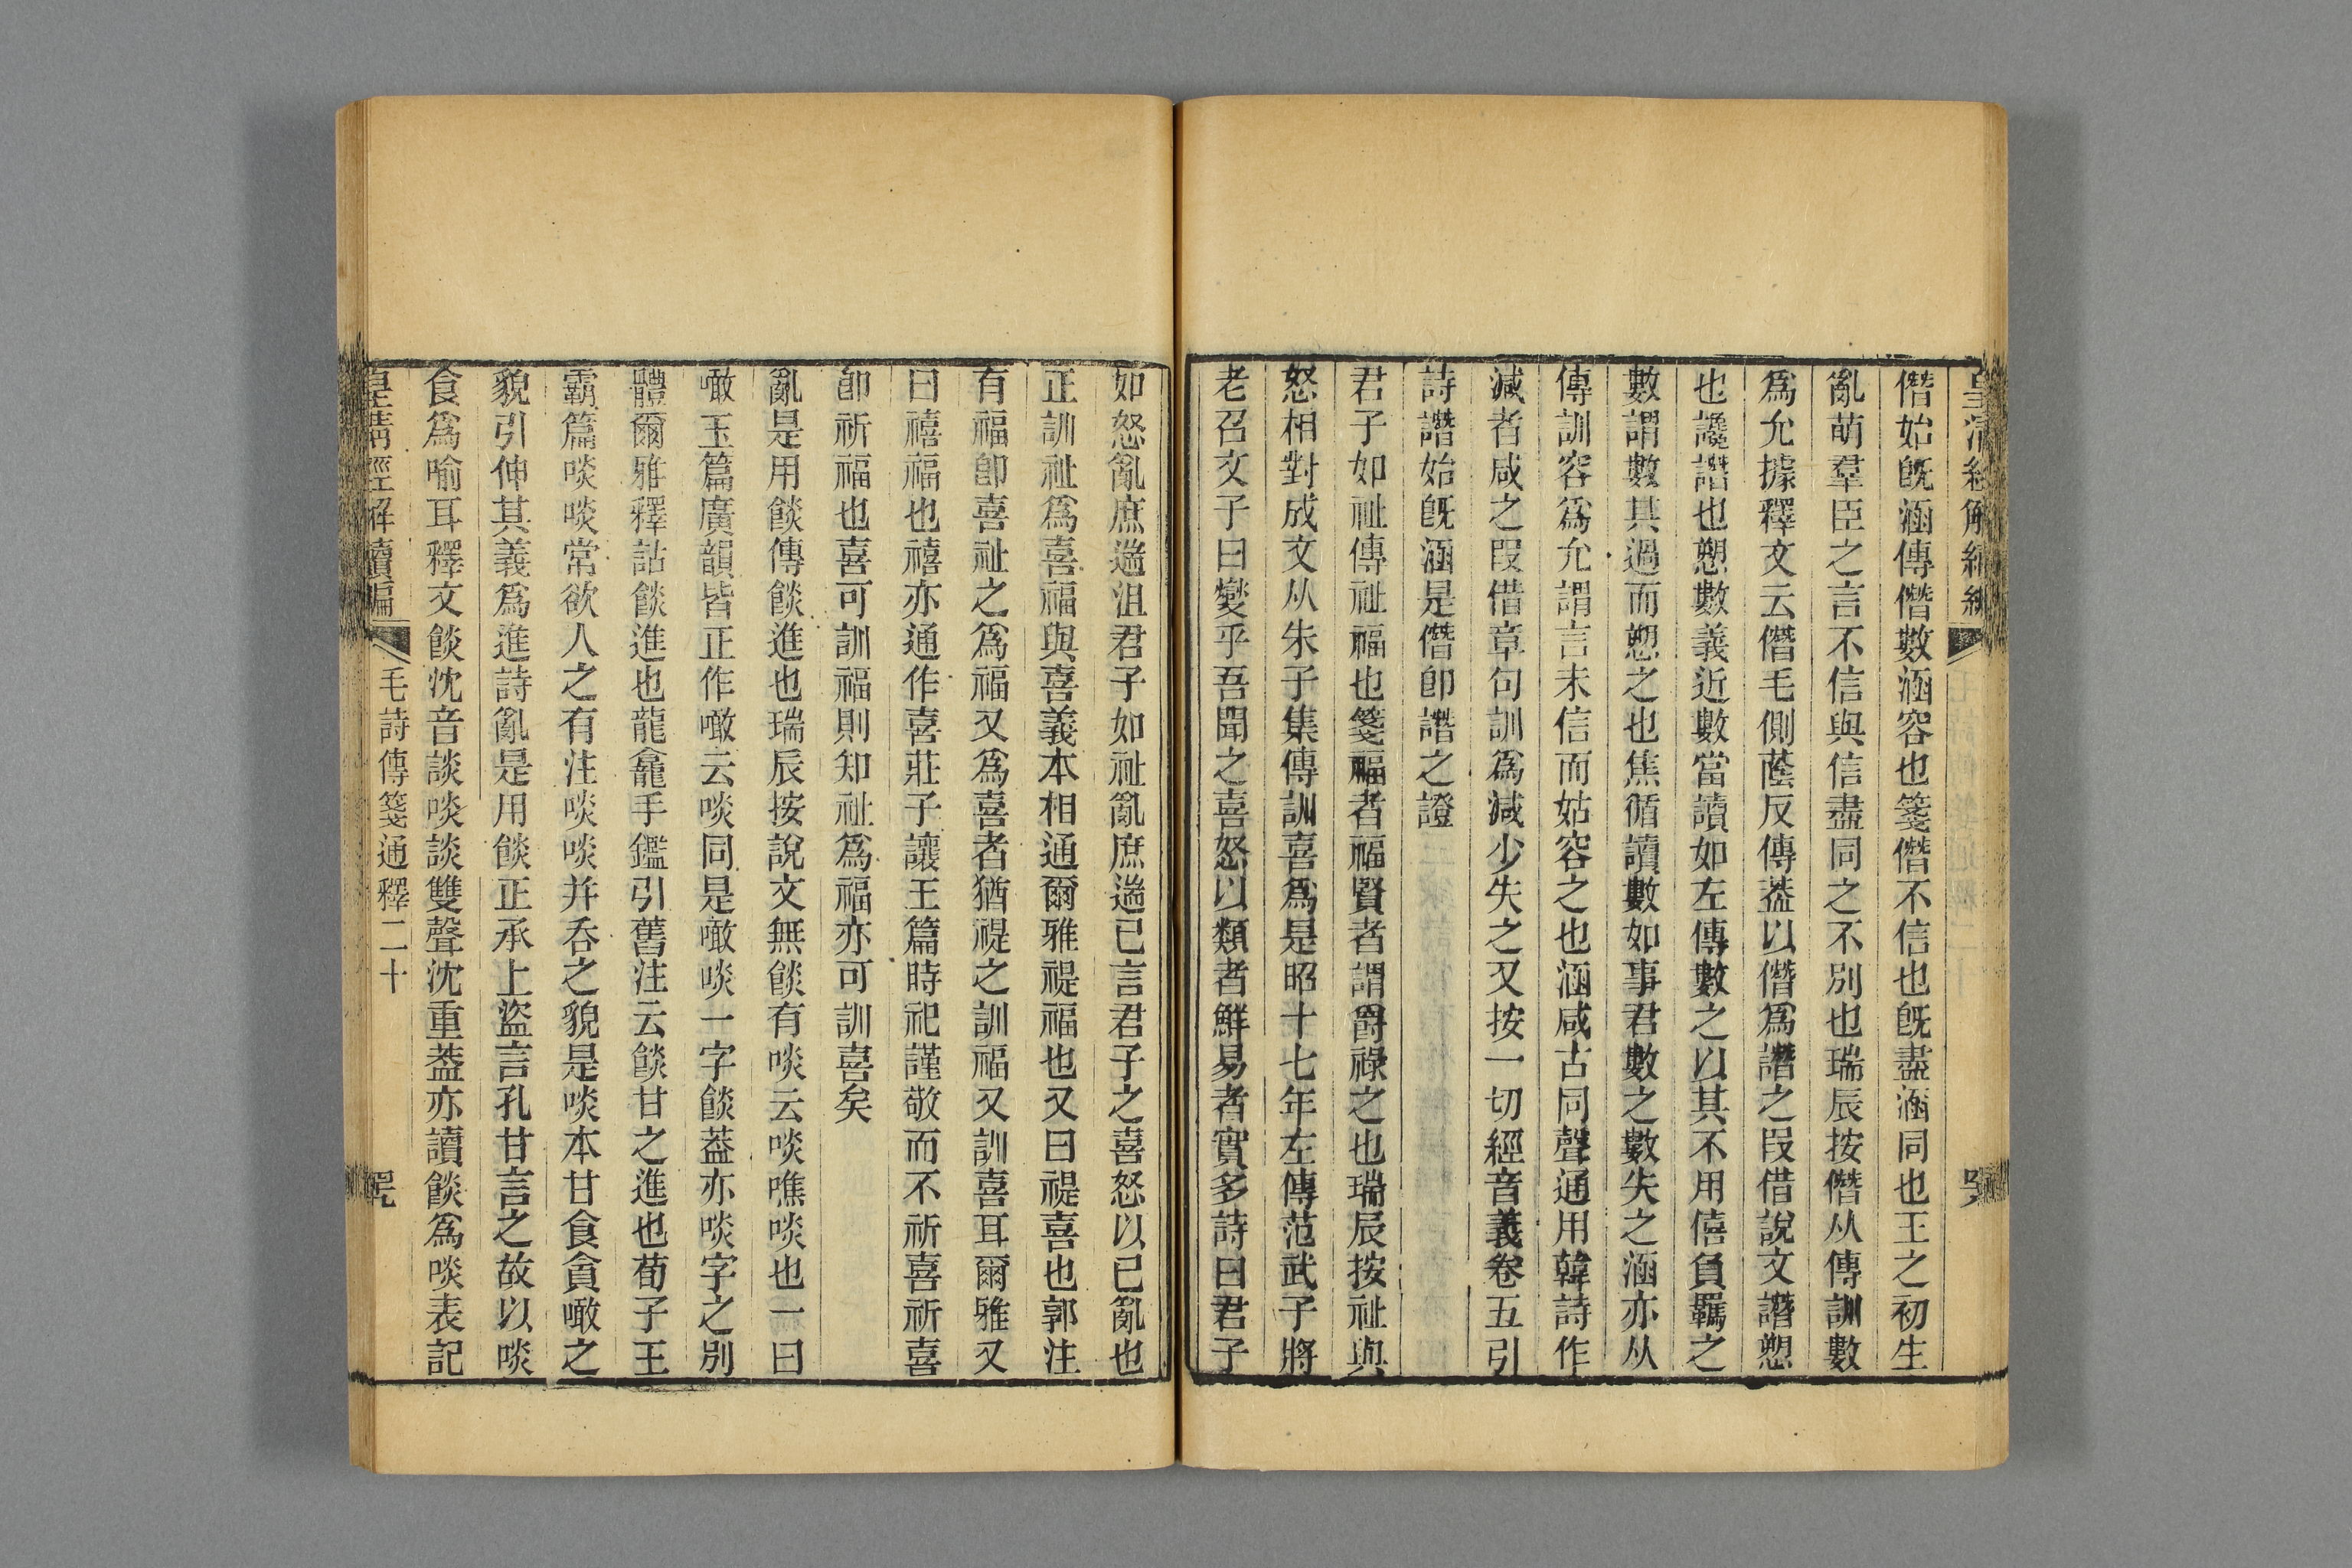 僭始旣涵傳僭數涵容也箋僭不信也旣盡涵同也王之初生
亂萌羣臣之言不信與信盡同之不別也瑞辰按僭从傳訓數
爲允據釋文云僭毛側蔭反傳葢以僭爲譖之叚借說文譖愬
也讒譖也愬數義近數當讀如左傳數之以其不用僖負羈之
數謂數其過而愬之也焦循讀數如事君數之數失之涵亦从
傳訓容爲允謂言未信而姑容之也涵咸古同聲通用韓詩作
減者咸之叚借章句訓爲減少失之又按一切經音義卷五引
詩譖始旣涵是僭卽譖之證
君子如祉傳祉福也箋福者福賢者謂爵祿之也瑞辰按祉與
怒相對成文从朱子集傳訓喜爲是昭十七年左傳范武子將
老召文子曰燮乎吾聞之喜怒以類者鮮易者實多詩曰君子
如怒亂庶遄沮君子如祉亂庶遄已言君子之喜怒以已亂也
正訓祉爲喜福與喜義本相通爾雅禔福也又曰禔喜也郭注
有福卽喜祉之爲福又爲喜者猶禔之訓福又訓喜耳爾雅又
曰禧福也禧亦通作喜莊子讓王篇時祀謹敬而不祈喜祈喜
卽祈福也喜可訓福則知祉爲福亦可訓喜矣
亂是用餤傳餤進也瑞辰按說文無餤有啖云啖噍啖也一曰
噉玉篇廣韻皆正作噉云啖同是噉啖一字餤葢亦啖字之別
體爾雅釋詁餤進也龍龕手鑑引舊注云餤甘之進也荀子王
霸篇啖啖常欲人之有注啖啖并吞之貌是啖本甘食貪噉之
貌引伸其義爲進詩亂是用餤正承上盜言孔甘言之故以啖
食爲喻耳釋文餤沈音談啖談雙聲沈重葢亦讀餤爲啖表記
皇淸經解續編
毛詩傳箋通釋二十